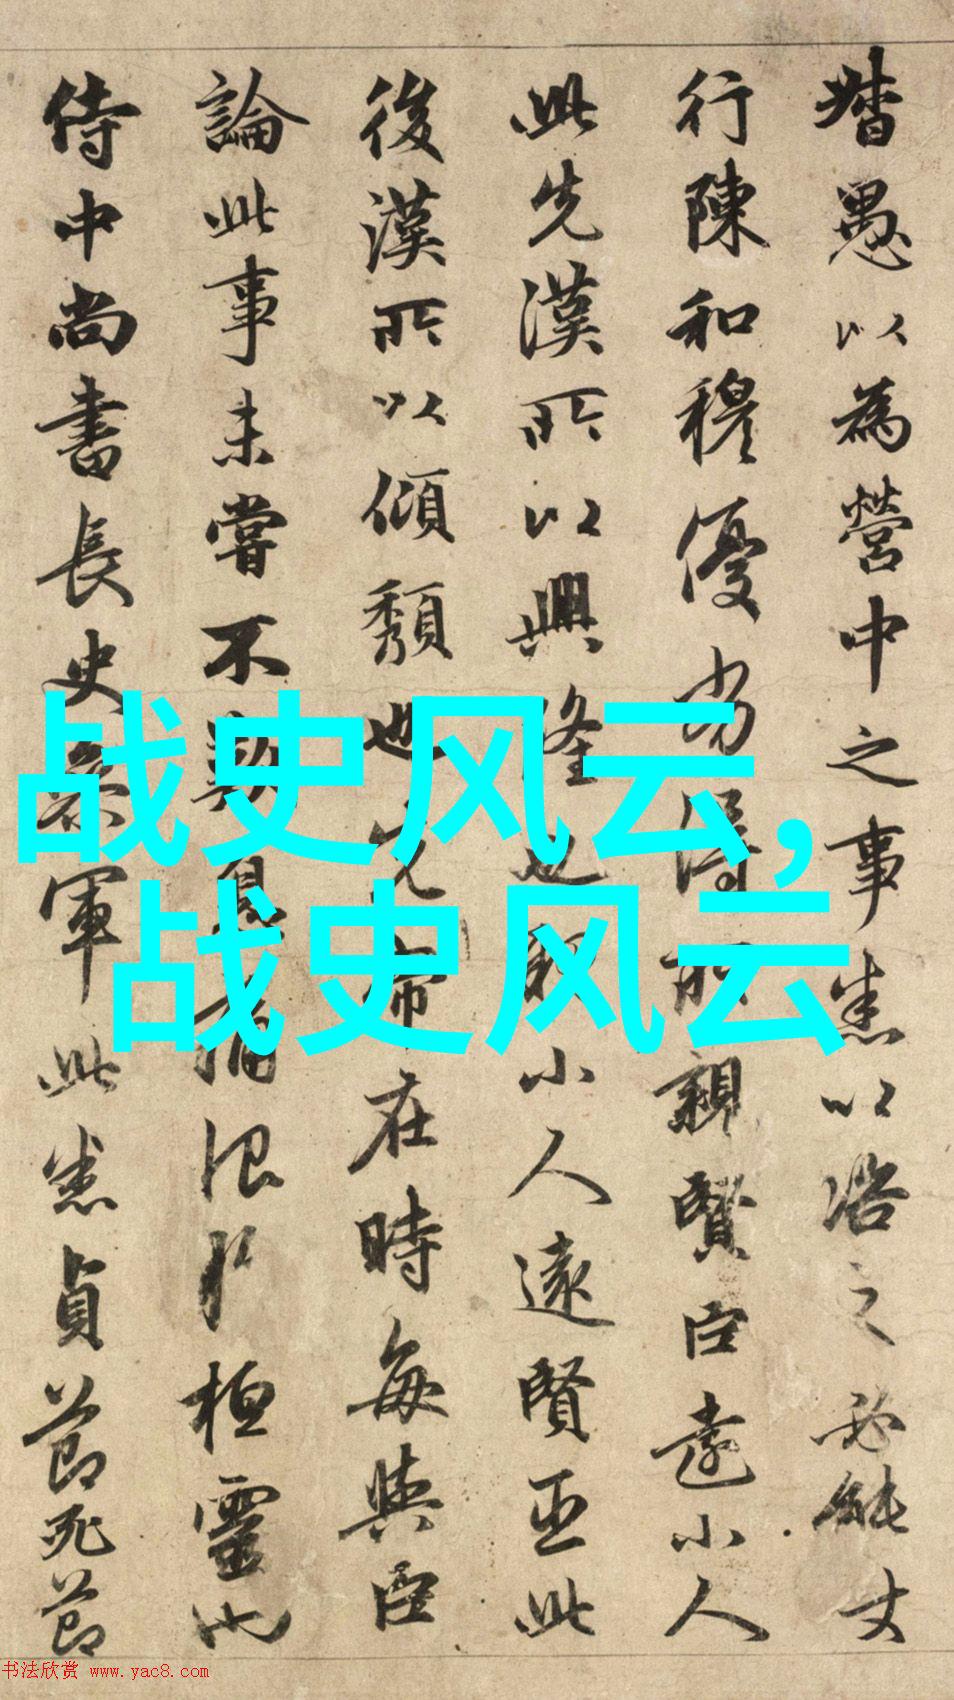 督愚以為營中之事悉以之必能
行陳和穆優劣得所親賢臣遠小人
此先漢所以興隆也親小人遠賢臣此
後漢所以傾頹也先帝在時每與臣
論此事未嘗不歎息痛恨於桓靈也
侍中尚書長史參軍此悉貞節死節
战史风云,
战史风云
书法欣赏 www.yac8.com